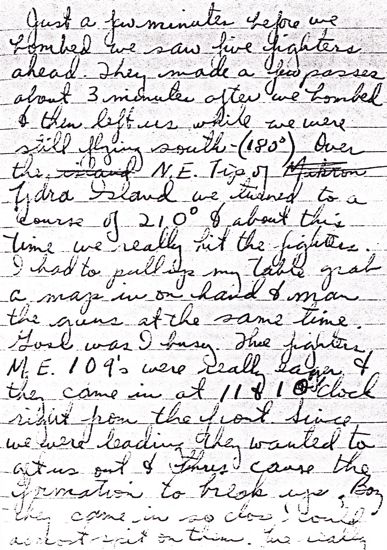 Just a few minutes before we
bombed we saw five fighters
ahead. They made a few passes
about 3 minutes after we bombed
& then left us while we were
still flying south-(180°) Over
the island N.E. Tip of
Ydra Island we turned to a
course of 210° & about this
time we really hit the fighters.
I had to pull up my table grab
a map in on hand & man
the guns at the same time.
Gosh was I busy. The fighters
M.E. 109's were really eager &
they came in at 11 & 1 O'clock
right from the front since
we were leading they wanted to
get us out & thus cause the
formation to break up. Boy
they came in so close I could
almost spit on them. We really